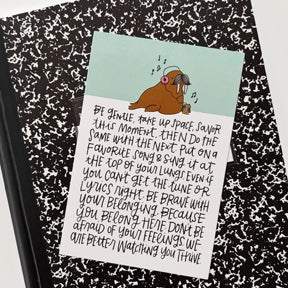 BE GENTLE, TAKE UP SPACE, SAVOR
THIS MOMENT, THEN DO THE
SAME WITH THE NEXT. PUT ON A
FAVORITE SONG & SING IT AT
THE TOP OF YOUR LUNGS EVEN IF
YOU CAN'T GET THE TUNE OR
LYRICS RIGHT. BE BRAVE WITH
YOUR BELONGING BECAUSE
YOU BELONG HERE. DON'T BE
AFRAID OF YOUR FEELINGS. WE
ARE BETTER WATCHING YOU THRIVE